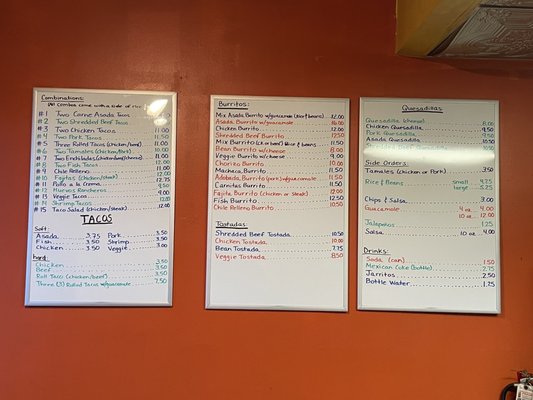 Combinations:
All combos come with a side of rice
#1 Two Carne Asada Tacos
#2 Two Shredded Beef Tacos 12.00
#3 Two Chicken Tacos 11.00
#4 Two Pork Tacos 11.50
#5 Three Rolled Tacos (chicken/beef) 11.00
#6 Two Tamales (Chicken/Pork) 10.00
#7 Two Enchiladas (chicken/beef/cheese) 11.00
#8 Two Fish Tacos 12.00
#9 Chile Relleno 11.00
#10 Fajitas (Chicken/steak) 12.75
#11 Pollo a la Crema 9.50
#12 Huevos Rancheros
#13 Veggie Tacos
#14 Shrimp Tacos
#15 Taco Salad (Chicken/steak) 12.00
TACOS
Soft:
Asada 3.75 Pork 3.50
Fish 3.50 Shrimp 3.50
Chicken 3.50 Veggie 3.00
Hard:
Chicken 3.50
Beef 3.50
Roll Taco (chicken/beef) 3.50
Three (3) Rolled Tacos w/guacamole 7.50
Burritos:
Mix Asada Burrito w/guacamole (rice & beans) 12.00
Asada Burrito w/guacamole
Chicken Burrito 12.00
Shredded Beef Burrito 12.50
Mix Burrito (chicken) Rice & beans 11.50
Bean Burrito w/cheese 8.00
Veggie Burrito w/cheese 9.00
Chorizo Burrito 10.00
Machaca Burrito 11.50
Adobada Burrito (pork) w/guacamole 11.50
Carnitas Burrito 11.50
Fajita Burrito (Chicken or Steak) 12.00
Fish Burrito 12.00
Chile Relleno Burrito 10.50
Tostadas:
Shredded Beef Tostada 10.50
Chicken Tostada 10.00
Bean Tostada 7.75
Veggie Tostada 8.50
Quesadillas
Quesadilla (cheese) 8.00
Chicken Quesadilla 9.50
Pork Quesadilla 9.50
Asada Quesadilla
Side Orders:
Tamales (Chicken or Pork) 3.50
Rice & Beans small 4.25
large 5.25
Chips & Salsa 3.00
Guacamole 4 oz 4.00
10 oz 12.00
Jalapeños 1.25
Salsa 10 oz 4.00
Drinks:
Soda (can) 1.50
Mexican Coke (bottle) 2.75
Jarritos 2.50
Bottle Water 1.25